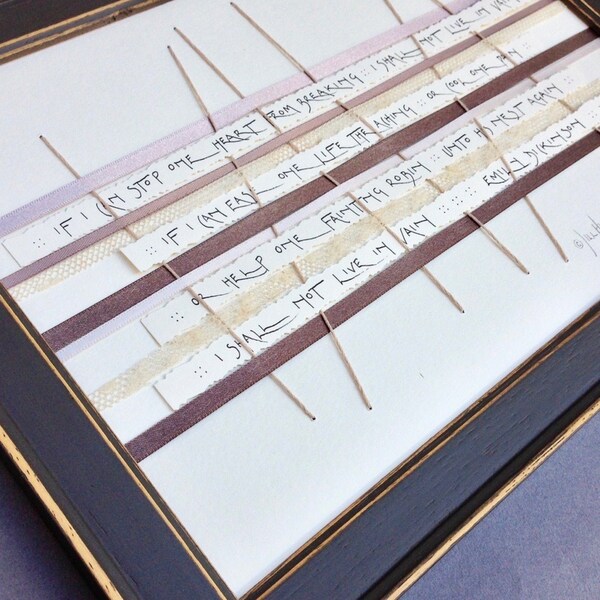 :: IF I CAN STOP ONE HEART FROM BREAKING :: I SHALL NOT LIVE IN VAIN
:: IF I CAN EASE ONE LIFE THE ACHING :: OR COOL ONE PAIN ::
:: OR HELP ONE FAINTING ROBIN :: UNTO HIS NEST AGAIN
:: I SHALL NOT LIVE IN VAIN :::: EMILY DICKINSON